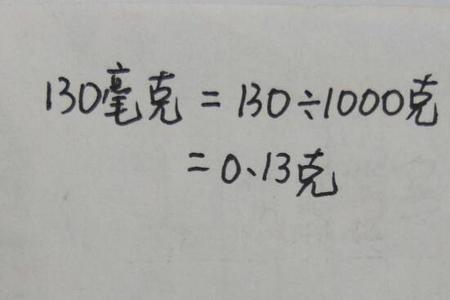 130毫克 = 130÷1000克
= 0.13克